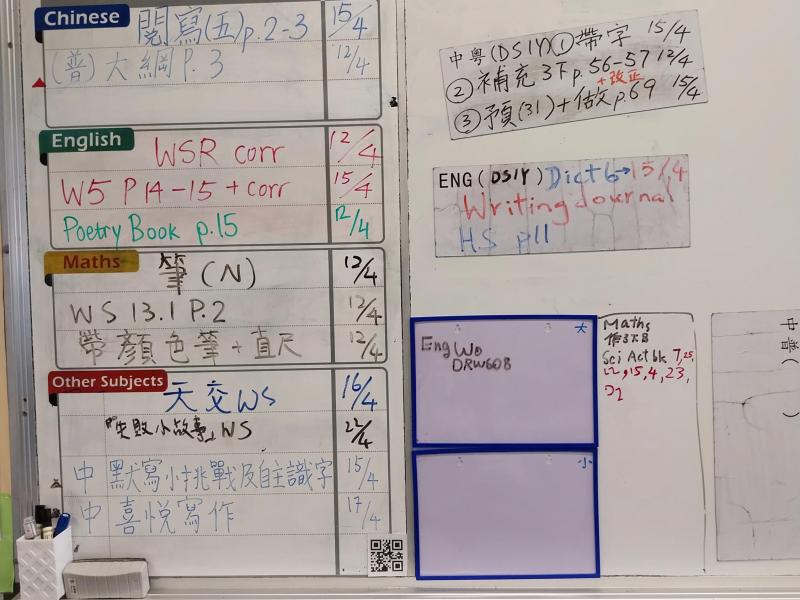 Chinese
閱寫(五)p.2-3 15/4
(普)大綱P.3 12/4
English
WSR corr 12/4
W5 P14-15 + corr 15/4
Poetry Book p.15 12/4
Maths
筆(N) 12/4
WS 13.1 P.2 12/4
帶顏色筆+直尺 12/4
Other Subjects
天交WS 16/4
「失敗小故事」WS 22/4
中 默寫小挑戰及自主識字 15/4
中 喜悅寫作 17/4
中粵(DS1Y)①帶字 15/4
②補充3下p.56-57 12/4
+改正
③預(31)+做p.69 15/4
ENG(DS1Y) Dict 6→15/4
Writing Journal
H.S p11
大
Eng Wo
DRWS08
小
Maths
Sci Act bk 7,25,
22,15,4,23,
21
中普( )